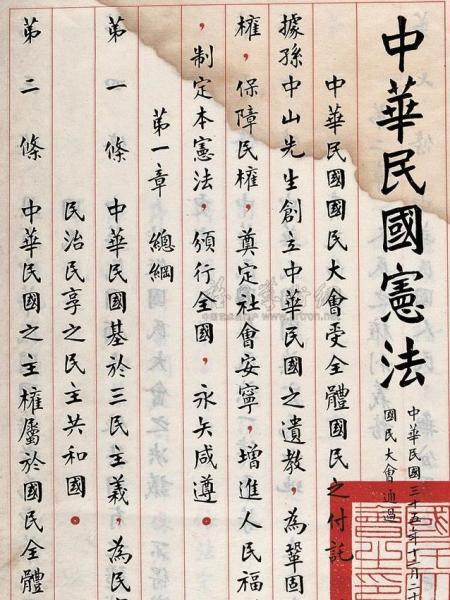 中華民國憲法
中華民國三十五年十二月二十
國民大會通過
中華民國國民大會受全體國民之付託
據孫中山先生創立中華民國之遺教，為鞏固
權，保障民權，奠定社會安寧，增進人民福
，制定本憲法，頒行全國，永矢咸遵。
第一章 總綱
第一條 中華民國基於三民主義，為民
民治民享之民主共和國。
第二條 中華民國之主權屬於國民全體